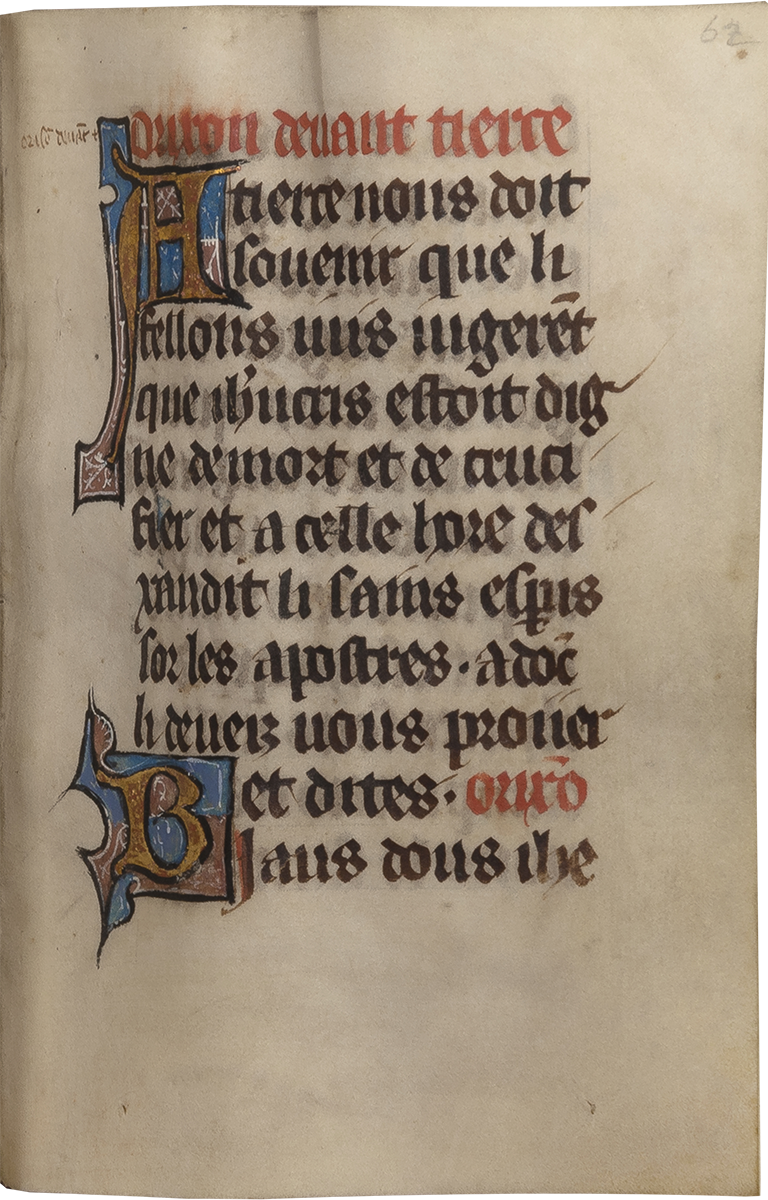 62
orixon deuant tierce
A tierce nous doit
souenir que li
fellons iuis iugerēt
que ihūcris estoit dig
ne de mort et de cruci
fier et a celle hore des
xandit li sains esp̄us
sor les apostres · adōc
li deuez uous proiier
et dites · orixō
Biaus dous ihe